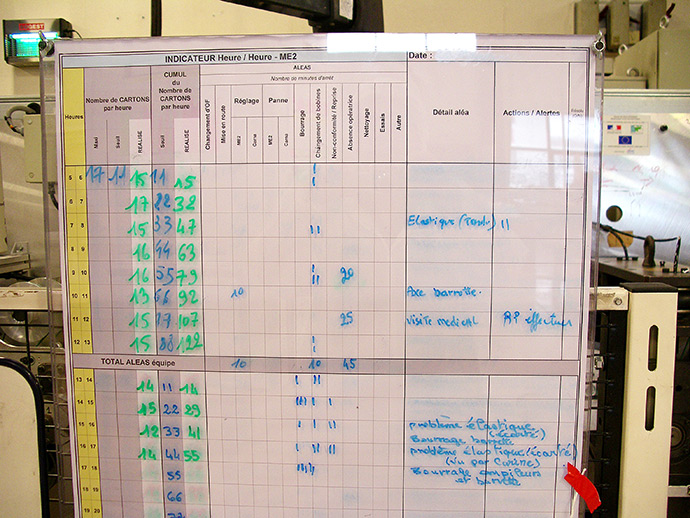 INDICATEUR Heure / Heure - ME2
Date :
Heures
Nombre de CARTONS par heure
CUMUL du Nombre de CARTONS par heure
ALEAS
Nombre de minutes d'arrêt
Détail aléa
Actions / Alertes
Maxi
Seuil
REALISE
Seuil
REALISE
Changement d'OF
Mise en route
Réglage
ME2
Panne
ME2
Bourrage
Changement de bobines
Non-conformité / Reprise
Absence opératrice
Nettoyage
Essais
Autre
5 6 17 11 15 11 15
6 7 17 22 32
7 8 15 33 47 Elastique
8 9 16 44 63
9 10 16 55 79 20
10 11 13 66 92 10 Axe barrette.
11 12 15 77 107 25 visite medical
12 13 15 88 122
TOTAL ALEAS équipe 10 10 45
13 14 14 11 14
14 15 15 22 29
15 16 12 33 41 problème élastique
Bourrage barrette
16 17 14 44 55 problème élastique (écarté)
(vu par
17 18 55 Bourrage empileurs
et barrette
18 19 66
19 20